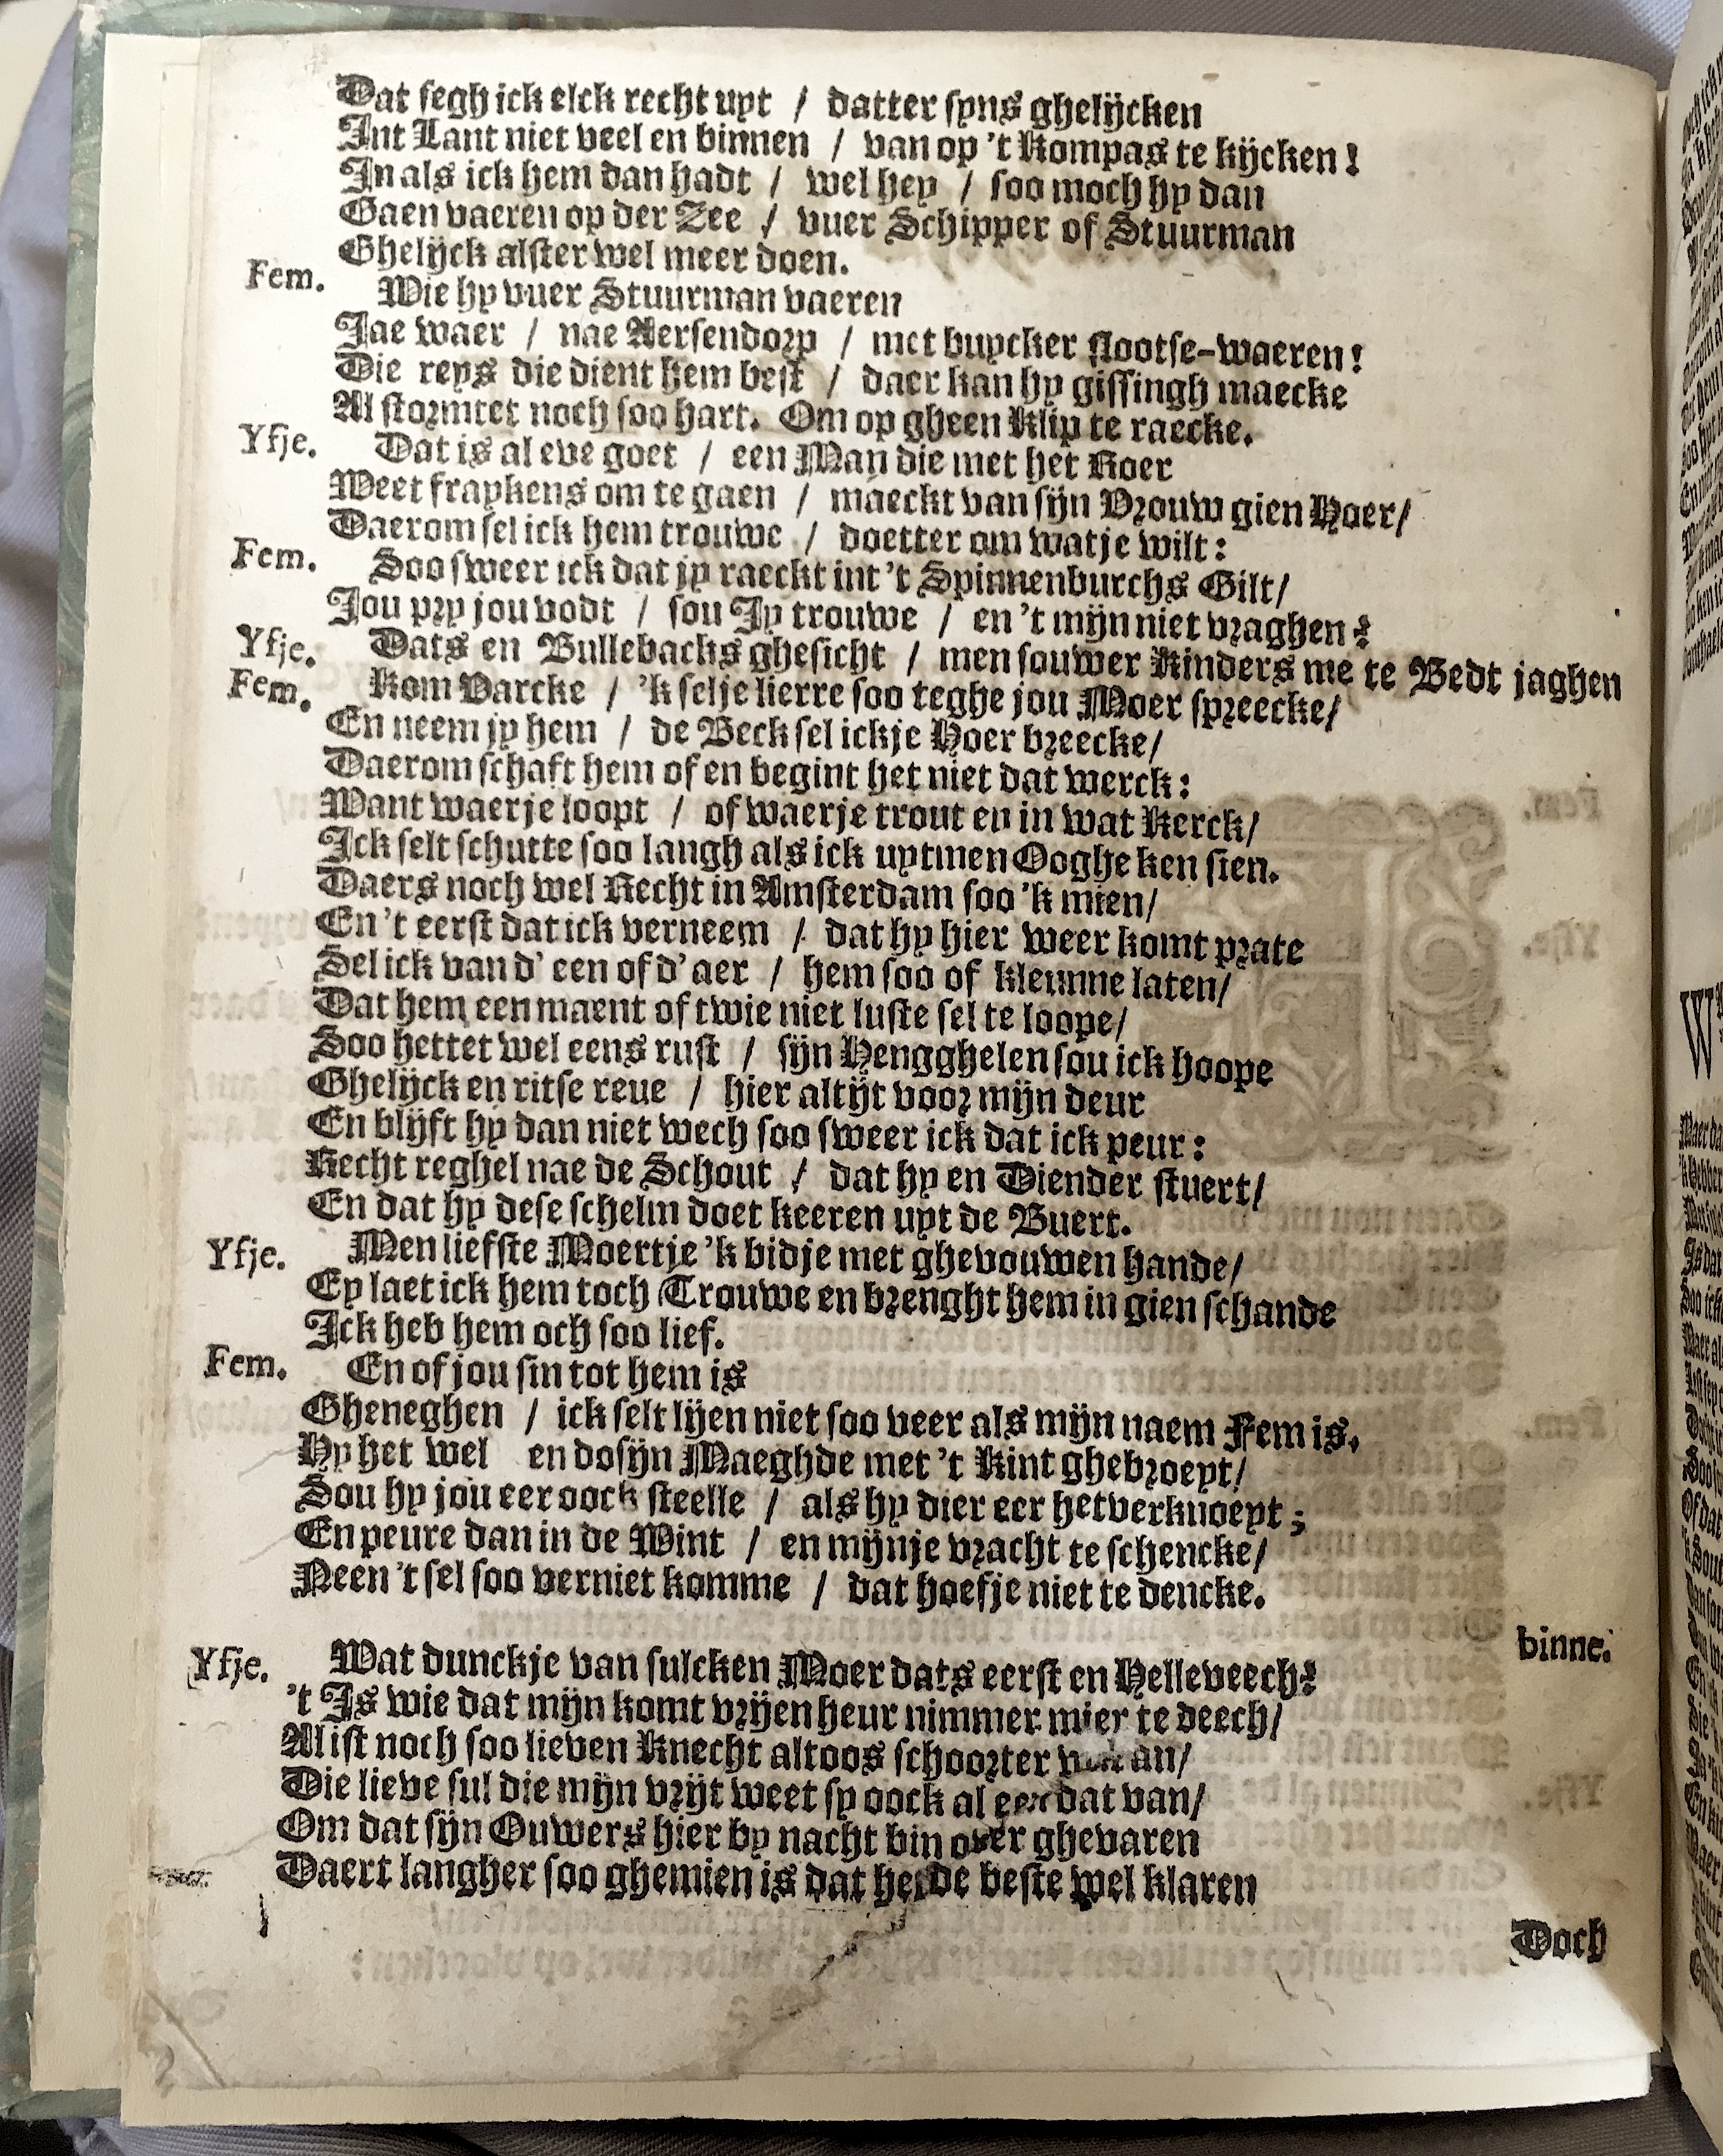 Dat segh ick elck recht uyt / datter syns ghelijcken
Int Lant niet veel en binnen / van op 't Kompas te kijcken!
In als ick hem dan hadt / wel hey / soo moch hy dan
Gaen vaeren op der Zee / vuer Schipper of Stuurman
Ghelijck alster wel meer doen.
Fem. Wie hy vuer Stuurman vaeren
Jae waer / nae Aersendorp / met buycker slootse-waeren!
Die reys die dient hem best / daer kan hy gissingh maecke
Al stormtet noch soo hart. Om op gheen Klip te raecke.
Yfje. Dat is al eve goet / een Man die met het Roer
Weet fraykens om te gaen / maeckt van sijn Vrouw gien Hoer/
Daerom sel ick hem trouwe / doetter om watje wilt:
Fem. Soo sweer ick dat jy raeckt int 't Spinnenburchs Gilt/
Jou pry jou vodt / sou Jy trouwe / en 't mijn niet vraghen?
Yfje. Dats en Bullebacks ghesicht / men souwer Kinders me te Bedt jaghen
Fem. Kom Varcke / 'k selje lierre soo teghe jou Moer spreecke/
En neem jy hem / de Beck sel ickje Hoer breecke/
Daerom schaft hem of en begint het niet dat werck:
Want waerje loopt / of waerje trout en in wat Kerck/
Ick selt schutte soo langh als ick uytmen Ooghe ken sien.
Daers noch wel Recht in Amsterdam soo 'k mien/
En 't eerst dat ick verneem / dat hy hier weer komt prate
Sel ick van d' een of d' aer / hem soo of kleunne laten/
Dat hem een maent of twie niet luste sel te loope/
Soo hettet wel eens rust / sijn Hengghelen sou ick hoope
Ghelijck en ritse reue / hier altijt voor mijn deur
En blijft hy dan niet wech soo sweer ick dat ick peur:
Recht reghel nae de Schout / dat hy en Diender stuert/
En dat hy dese schelm doet keeren uyt de Buert.
Yfje. Men liefste Moertje 'k bidje met ghevouwen hande/
Ey laet ick hem toch Trouwe en brenght hem in gien schande
Ick heb hem och soo lief.
Fem. En of jou sin tot hem is
Gheneghen / ick selt lijen niet soo veer als mijn naem Fem is.
Hy het wel en dosijn Maeghde met 't Kint ghebroeyt/
Sou hy jou eer oock steelle / als hy dier eer het verknoeyt;
En peure dan in de Wint / en mijnje vracht te schencke/
Neen 't sel soo verniet komme / dat hoefje niet te dencke.
binne.
Yfje. Wat dunckje van sulcken Moer dats eerst en Helleveech?
't Is wie dat mijn komt vrijen heur nimmer mier te deech/
Al ist noch soo lieven Knecht altoos schoorter an/
Die lieve sul die mijn vrijt weet sy oock al dat van/
Om dat sijn Ouwers hier by nacht bin over ghevaren
Daert langher soo ghemien is dat de beste wel klaren
Doch